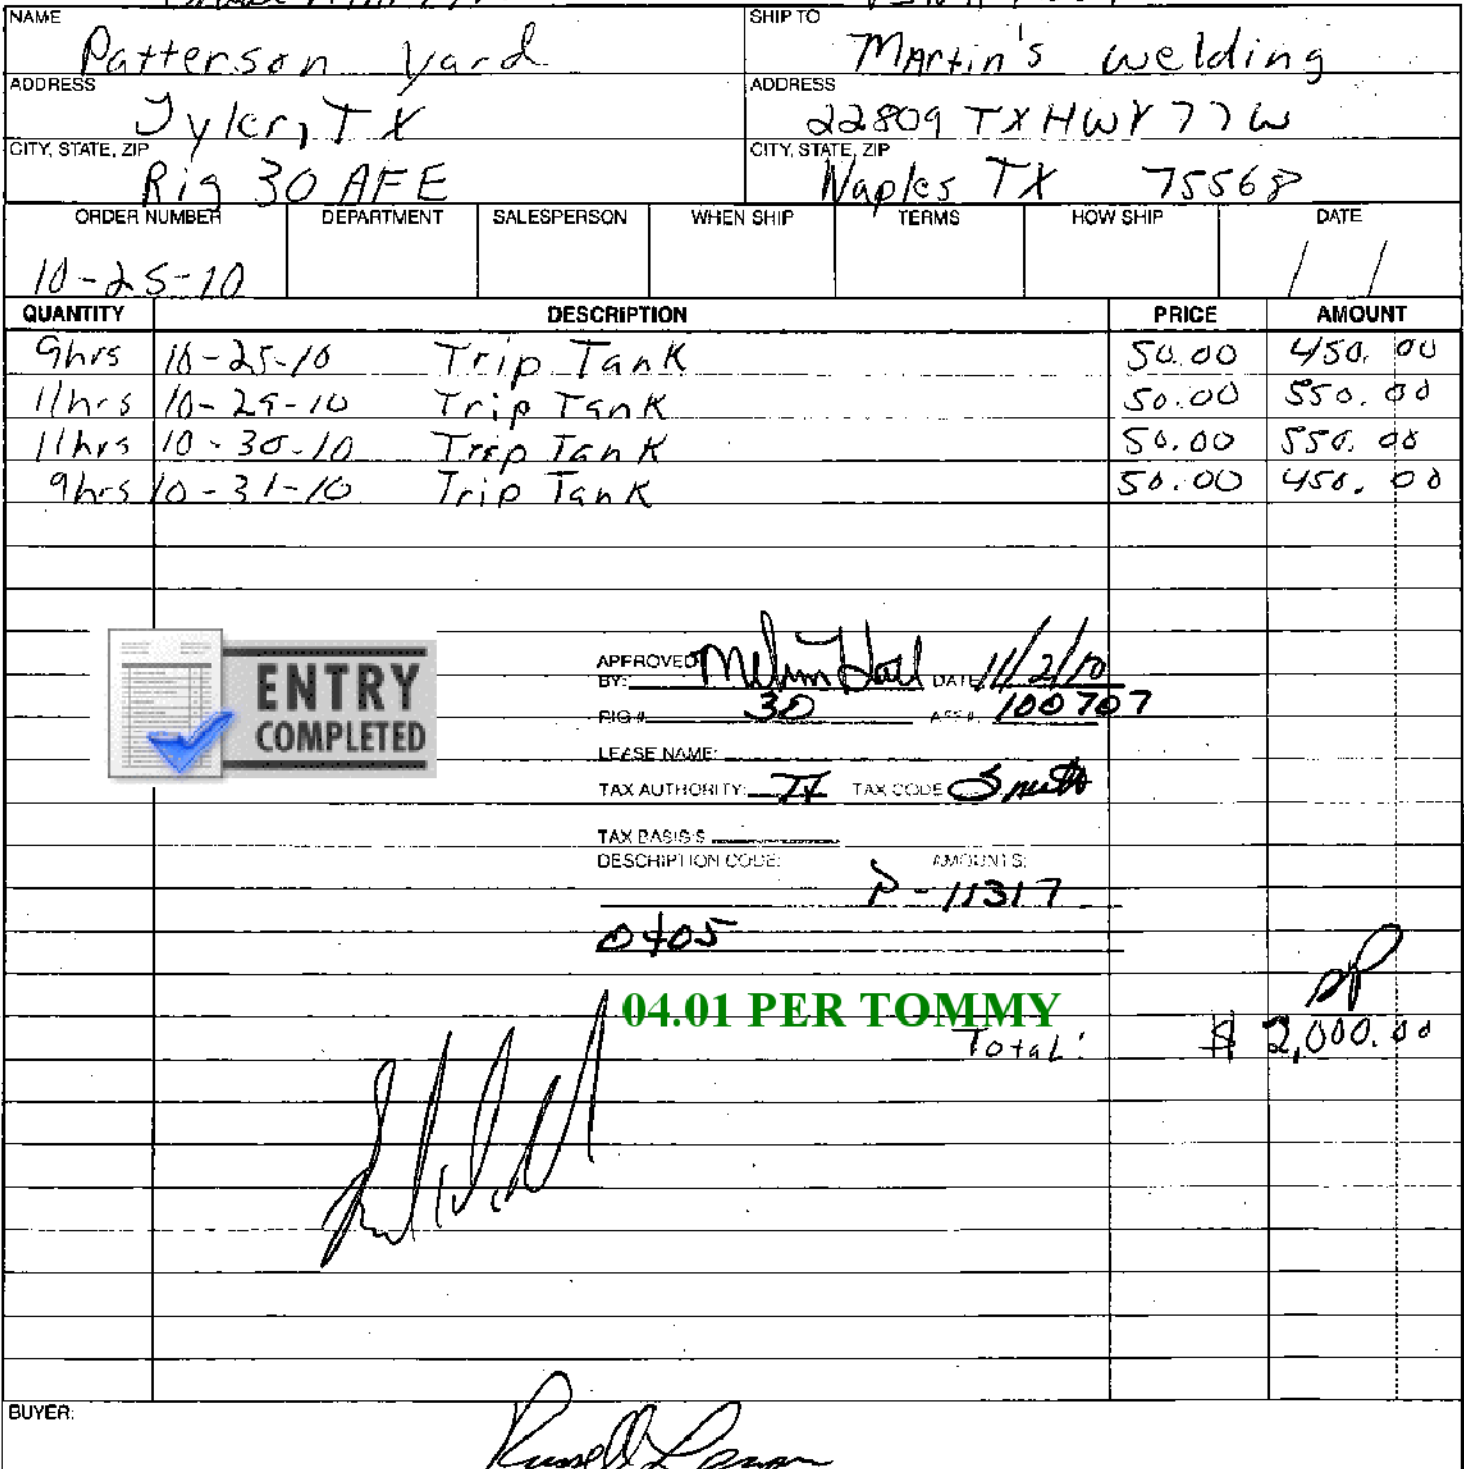 NAME SHIP TO
Patterson Yard Martin's welding
ADDRESS ADDRESS
Tyler, TX 22809 TX HWY 77 W
CITY, STATE, ZIP CITY, STATE, ZIP
Rig 30 AFE Naples TX 75568
ORDER NUMBER DEPARTMENT SALESPERSON WHEN SHIP TERMS HOW SHIP DATE
10-25-10 / /
QUANTITY DESCRIPTION PRICE AMOUNT
9hrs 10-25-10 Trip Tank 50.00 450.00
11hrs 10-29-10 Trip Tank 50.00 550.00
11hrs 10-30-10 Trip Tank 50.00 550.00
9hrs 10-31-10 Trip Tank 50.00 450.00
ENTRY
COMPLETED
APPROVED
BY: Melvin Hall DATE 11/2/10
RIG # 30 AFE#: 100707
LEASE NAME:
TAX AUTHORITY: TX TAX CODE Smith
TAX BASIS $
DESCRIPTION CODE: AMOUNTS:
P-11317
0405
04.01 PER TOMMY
Total: $ 2,000.00
BUYER:
Russell